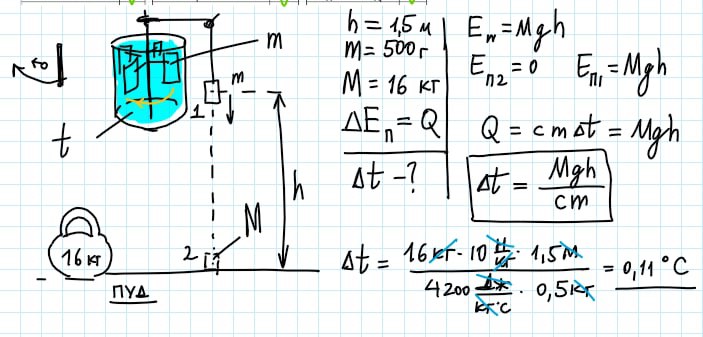 m
m
1
t
h
M
2
16 кг
ПУД
h = 1,5 м
m = 500 г
M = 16 кг
ΔEп = Q
Δt - ?
Eп = Mgh
Eп2 = 0 Eп1 = Mgh
Q = c m Δt = Mgh
Δt = Mgh / cm
Δt = 16 кг · 10 Н/кг · 1,5 м / 4200 Дж/кг°С · 0,5 кг = 0,11 °C